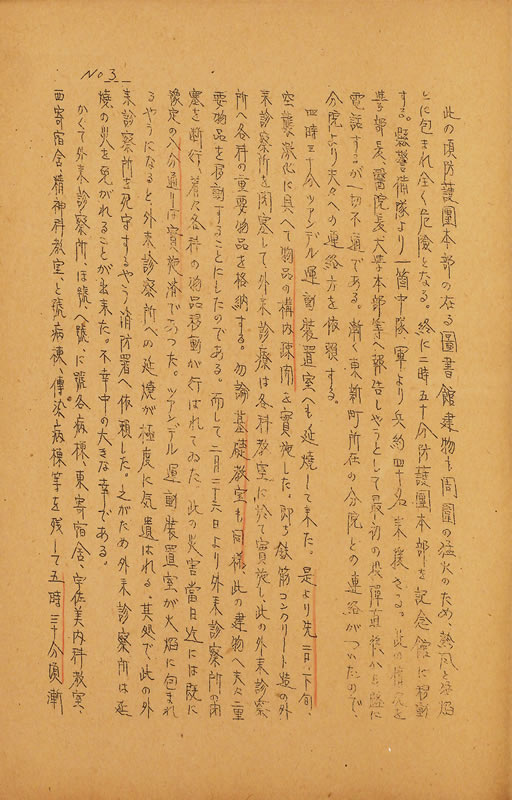 No 3
此の頃防護團本部の在る圖書館建物も周圍の猛火のため、熱風と火焔
とに包まれ全く危険となる。終に二時五十分防護團本部を記念館に移動
する。縣警備隊より一箇中隊軍より兵約四十名来援さる。此の情況を
学部長、醫院長大学本部等へ報告しやうとして最初の投弾直後から盛に
電話するが一切不通である。漸く東新町所在の分院との連絡がついたので、
分院より夫々への連絡方を依頼する。
四時三十分ツアンデル運動装置室へも延焼して来た。是より先二月下旬、
空襲激化に具へて物品の構内疎開を実施した。即ち鉄筋コンクリート造の外
来診察所を閉塞して外来診療は各科教室に於て實施し、此の外来診察
所へ各科の重要物品を格納する。勿論基礎教室も同様、此の建物へ夫々重
要物品を移動することにしたのである。而して二月二十六日より外来診察所の閉
塞を断行、着々各科の物品移動が行はれてゐた。此の災害當日近には既に
豫定の八分通りは實施済であつた。ツアンデル運動装置室が火焔に包まれ
るやうになると、外来診察所への延焼が極度に気遣はれる。其処で此の外
来診察所を死守するやう消防署へ依頼した。之がため外来診察所は延
焼の災を免がれることが出来た。不幸中の大きな幸である。
かくて外来診察所、ほ號、へ號、に號各病棟、東寄宿舎、宇佐美内科教室、
西寄宿舎、精神科教室、と號病棟、傳染病棟等を残して五時三十分頃漸